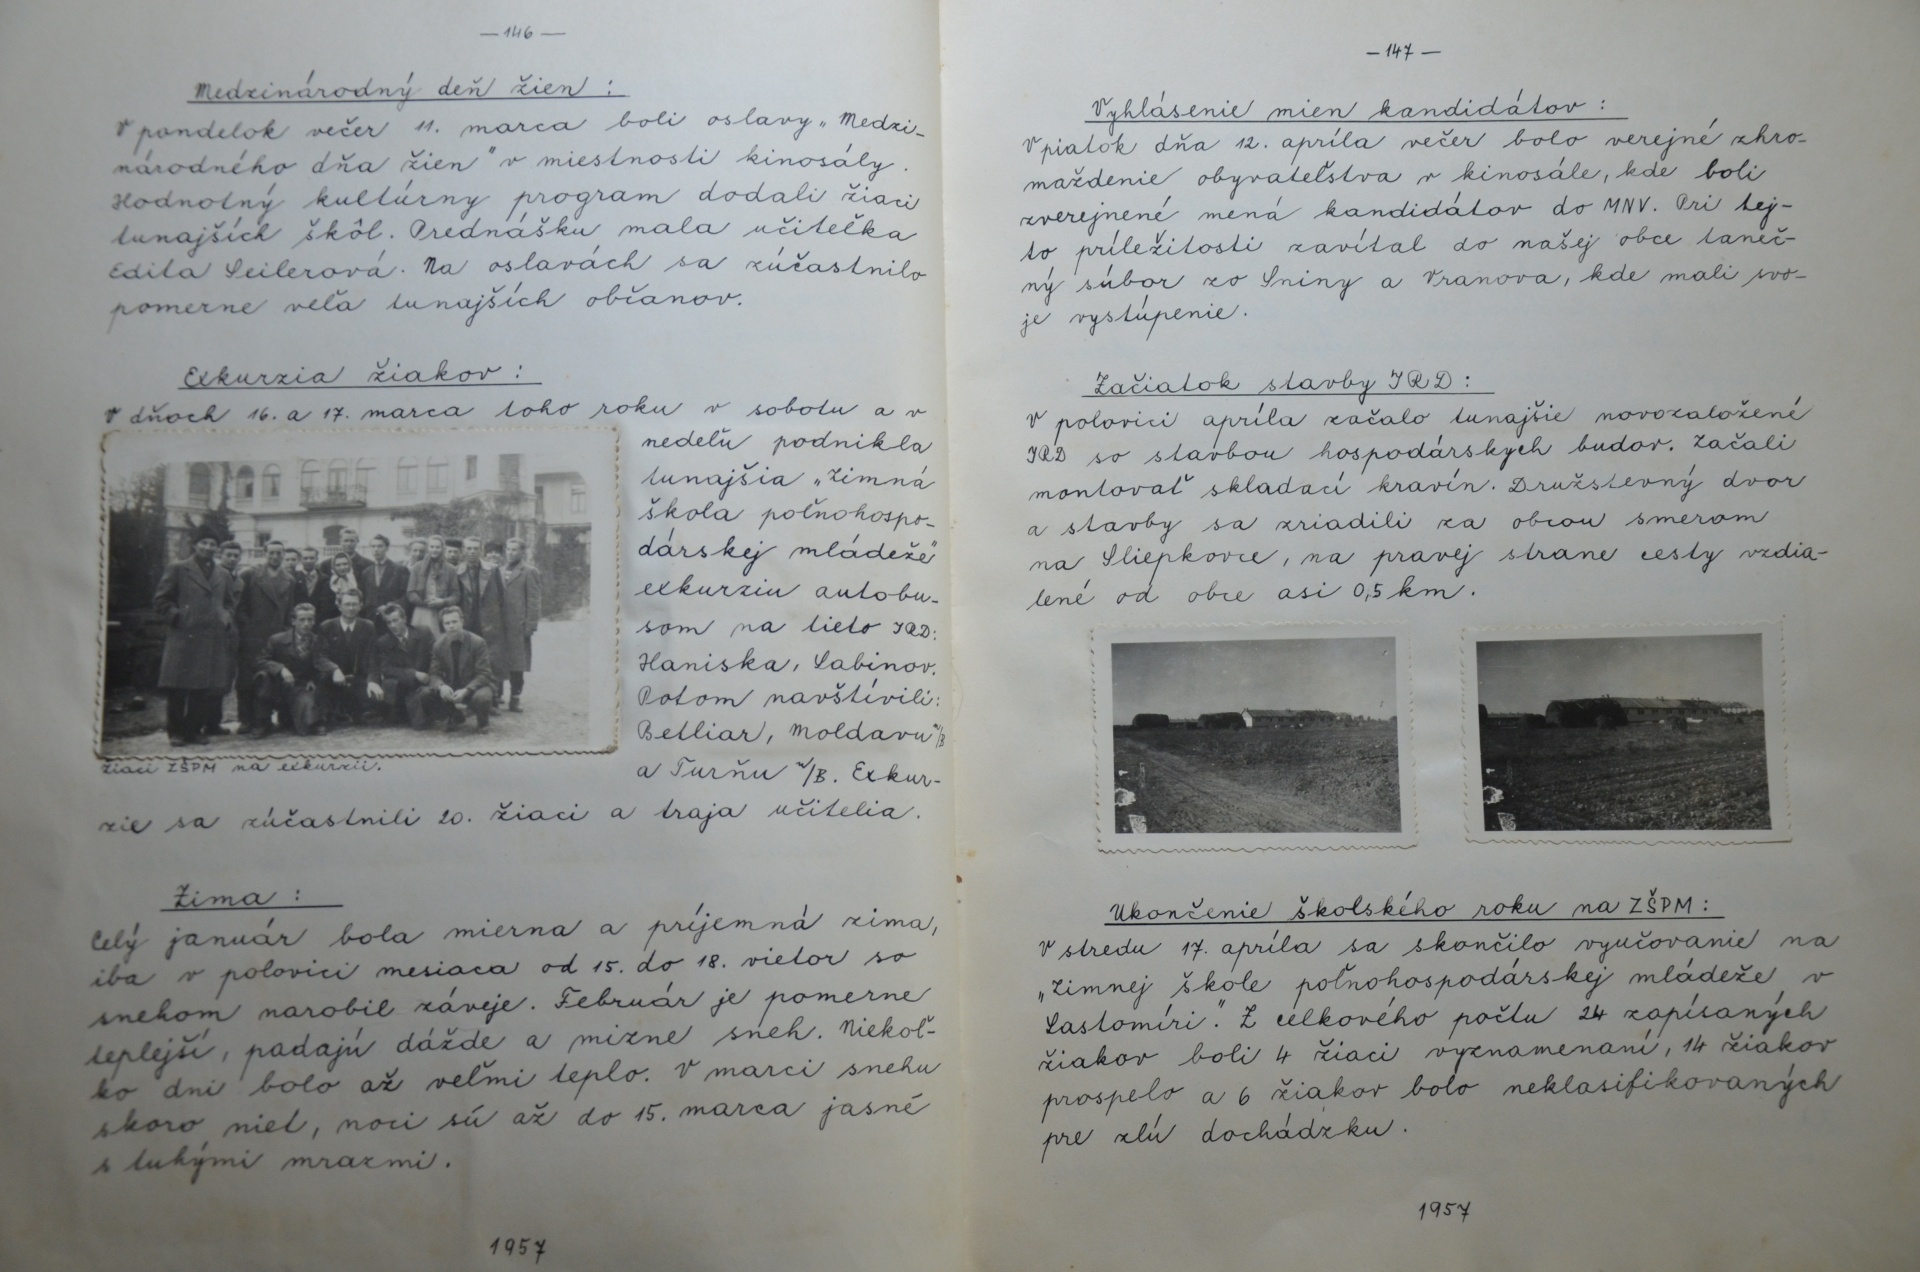 — 146 —
Medzinárodný deň žien :
V pondelok večer 11. marca boli oslavy „Medzi-
národného dňa žien" v miestnosti kinosály.
Hodnotný kultúrny program dodali žiaci
tunajších škôl. Prednášku mala učiteľka
Edita Seilerová. Na oslavách sa zúčastnilo
pomerne veľa tunajších občanov.
Exkurzia žiakov :
V dňoch 16. a 17. marca toho roku v sobotu a v
nedeľu podnikla
tunajšia „Zimná
škola poľnohospo-
dárskej mládeže"
exkurziu autobu-
som na tieto JRD:
Haniska, Sabinov.
Potom navštívili:
Betliar, Moldavu n/B
a Turňu n/B. Exkur-
žiaci ZŠPM na exkurzii.
zie sa zúčastnili 20. žiaci a traja učitelia.
Zima :
Celý január bola mierna a príjemná zima,
iba v polovici mesiaca od 15. do 18. vietor so
snehom narobil záveje. Február je pomerne
teplejší, padajú dážde a mizne sneh. Niekoľ-
ko dni bolo až veľmi teplo. V marci snehu
skoro niet, noci sú až do 15. marca jasné
s tuhými mrazmi.
1957
— 147 —
Vyhlásenie mien kandidátov :
V piatok dňa 12. apríla večer bolo verejné zhro-
maždenie obyvateľstva v kinosále, kde boli
zverejnené mená kandidátov do MNV. Pri tej-
to príležitosti zavítal do našej obce taneč-
ný súbor zo Sniny a Vranova, kde mali svo-
je vystúpenie.
Začiatok stavby JRD :
V polovici apríla začalo tunajšie novozaložené
JRD so stavbou hospodárskych budov. Začali
montovať skladací kravín. Družstevný dvor
a stavby sa zriadili za obcou smerom
na Sliepkovce, na pravej strane cesty vzdia-
lené od obce asi 0,5 km.
Ukončenie školského roku na ZŠPM :
V stredu 17. apríla sa skončilo vyučovanie na
„Zimnej škole poľnohospodárskej mládeže v
Lastomíri". Z celkového počtu 24 zapísaných
žiakov boli 4 žiaci vyznamenaní, 14 žiakov
prospelo a 6 žiakov bolo neklasifikovaných
pre zlú dochádzku.
1957